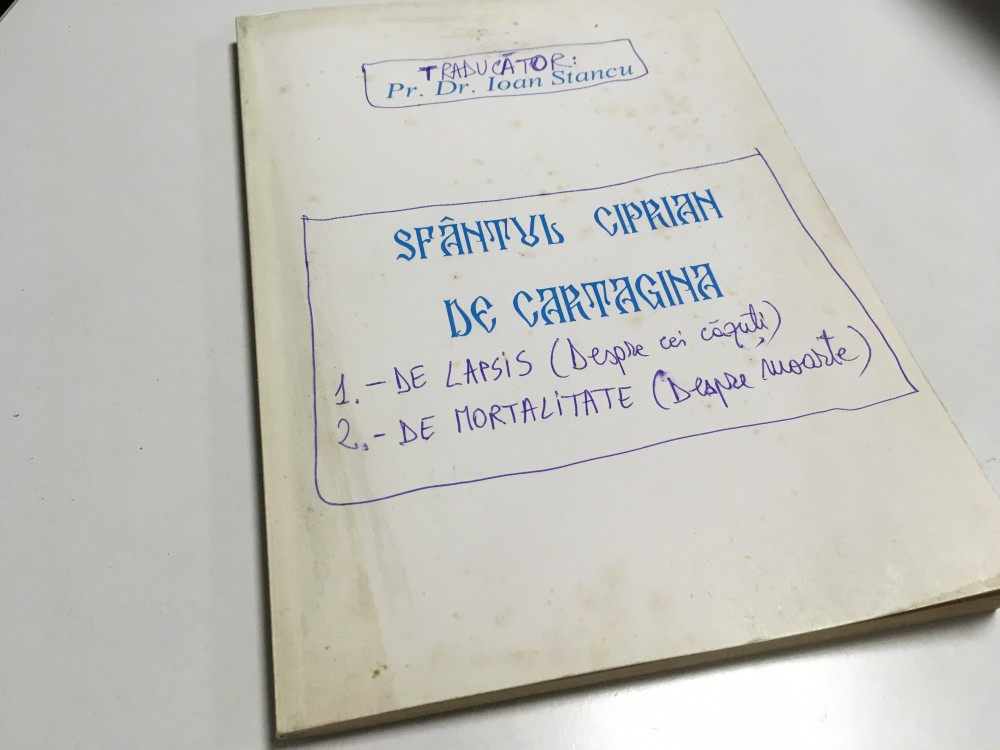 TRADUCĂTOR:
Pr. Dr. Ioan Stancu
SFÂNTUL CIPRIAN
DE CARTAGINA
1. - DE LAPSIS (Despre cei căzuți)
2. - DE MORTALITATE (Despre moarte)